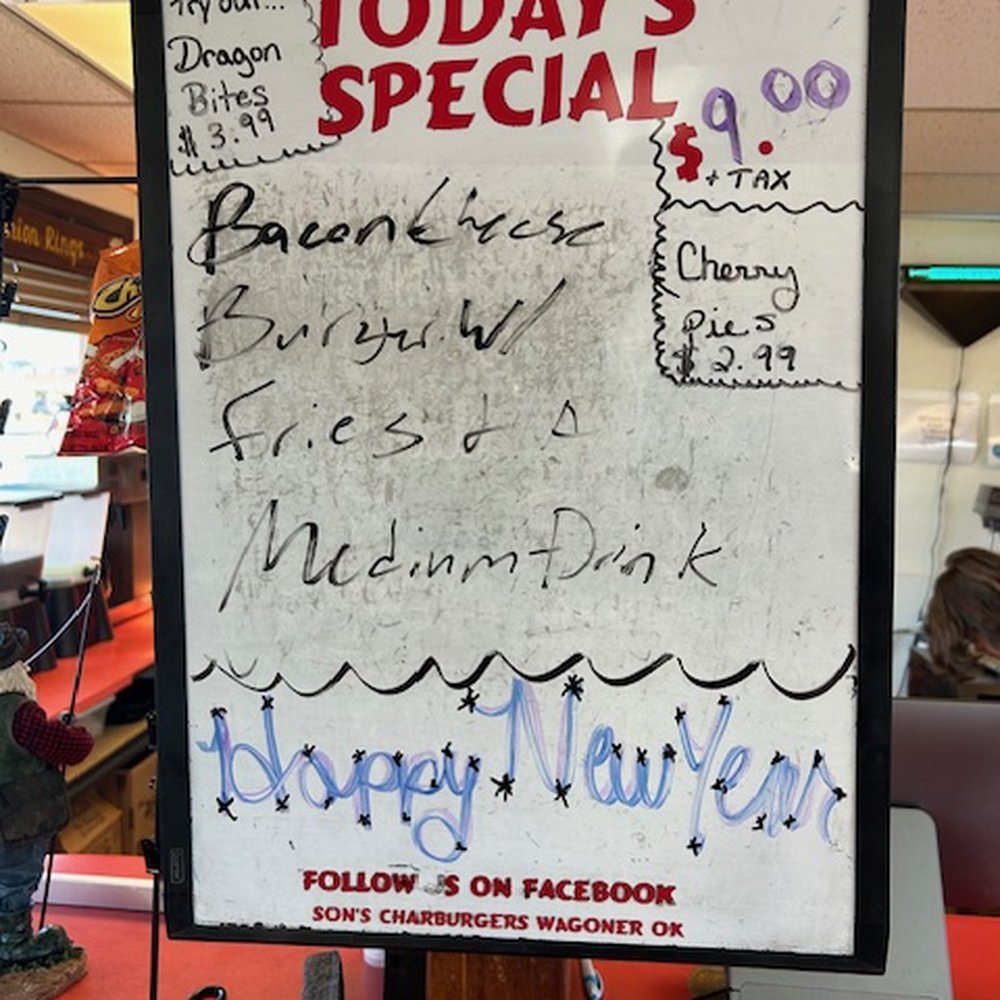 Try our...
Dragon
Bites
$3.99
TODAY'S
SPECIAL
$9.00
+ TAX
Cherry
Pies
$2.99
Bacon Cheese
Burger W/
Fries + A
Medium Drink
Happy New Year
FOLLOW US ON FACEBOOK
SON'S CHARBURGERS WAGONER OK
Rings